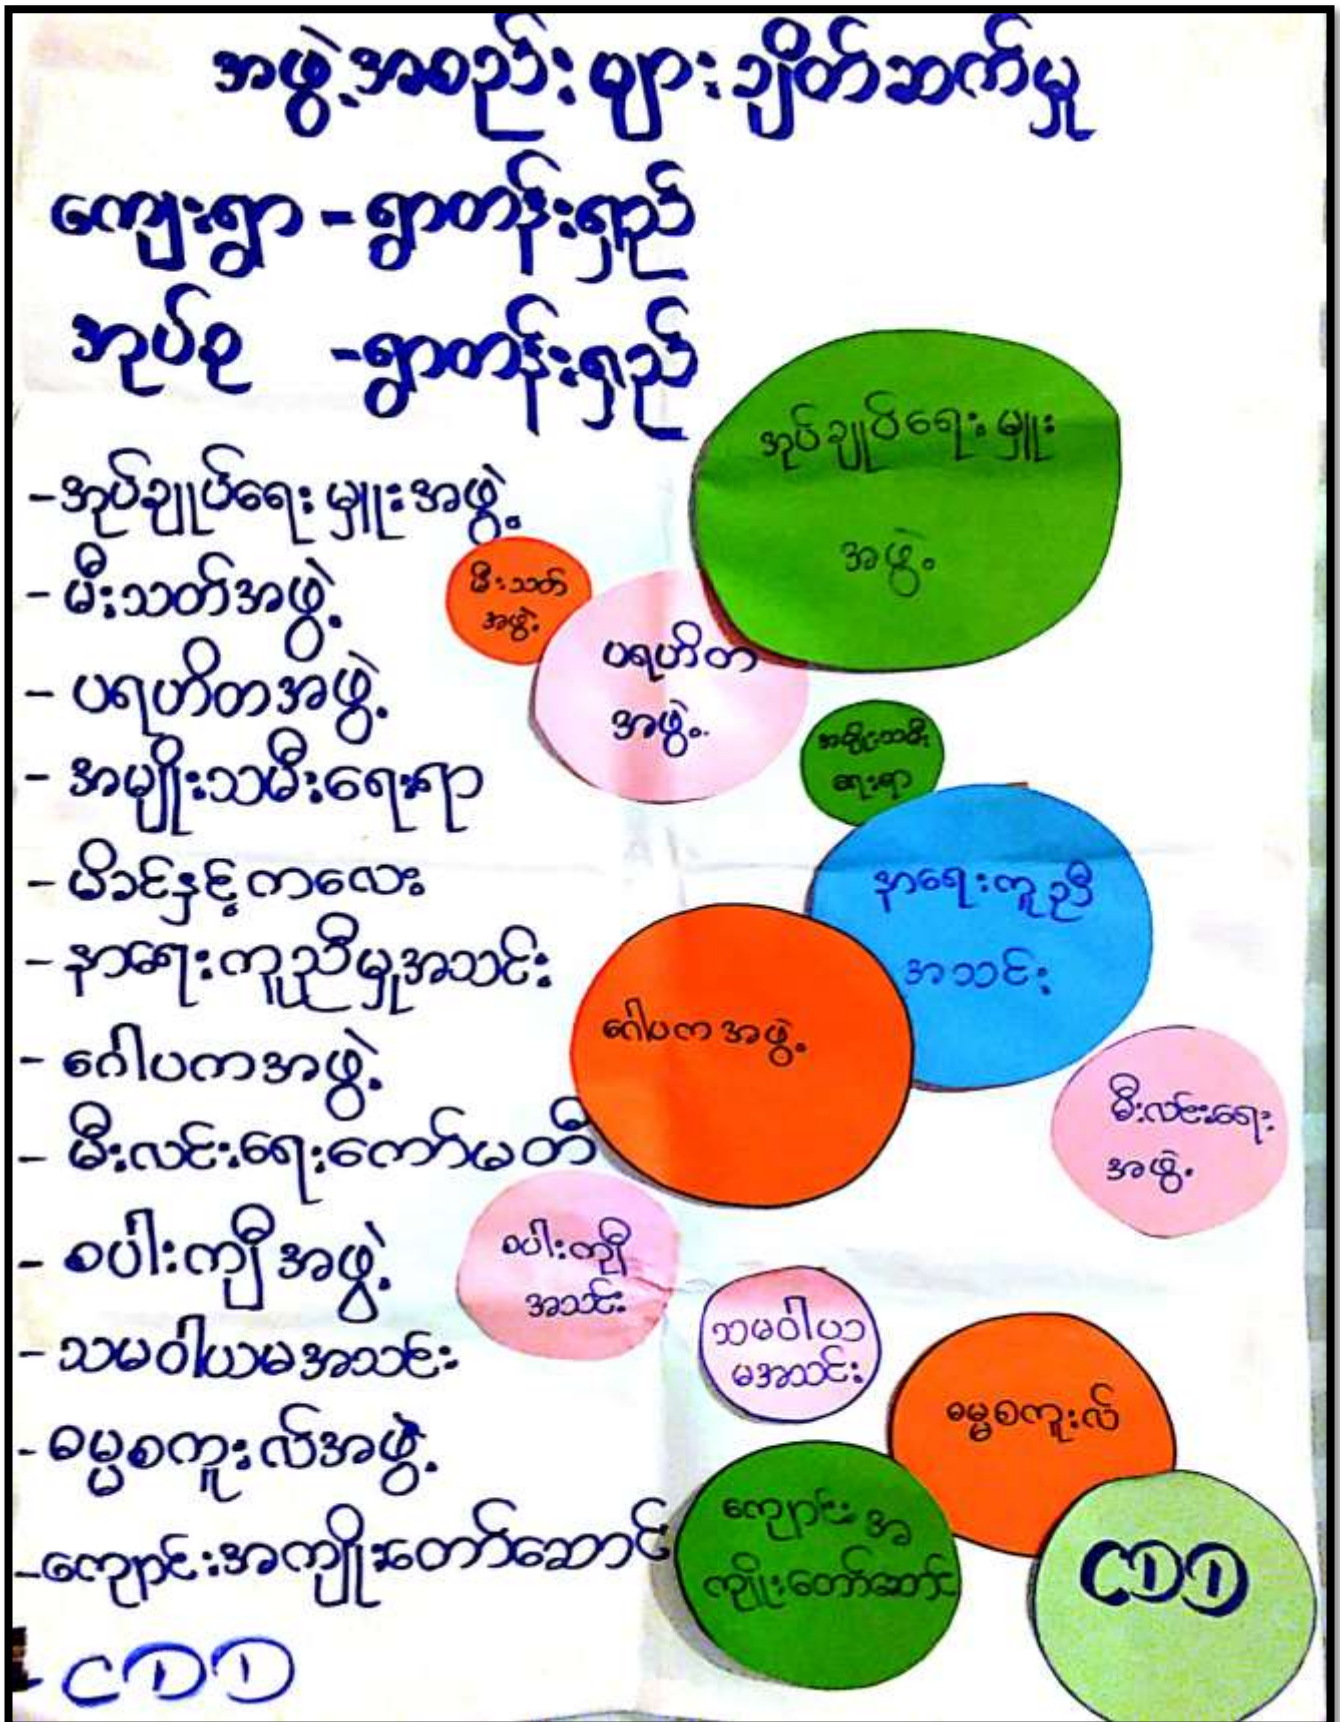 အဖွဲ့အစည်းများချိတ်ဆက်မှု
ကျေးရွာ - ရွာတန်းရှည်
အုပ်စု - ရွာတန်းရှည်
- အုပ်ချုပ်ရေးမှူးအဖွဲ့
- မီးသတ်အဖွဲ့
- ပရဟိတအဖွဲ့
- အမျိုးသမီးရေးရာ
- မိခင်နှင့်ကလေး
- နာရေးကူညီမှုအသင်း
- ဂေါပကအဖွဲ့
- မီးလင်းရေးကော်မတီ
- စပါးကျီအဖွဲ့
- သမဝါယမအသင်း
- ဓမ္မစကူးလ်အဖွဲ့
- ကျောင်းအကျိုးတော်ဆောင်
- CDD
အုပ်ချုပ်ရေးမှူး
အဖွဲ့
မီးသတ်
အဖွဲ့
ပရဟိတ
အဖွဲ့
အမျိုးသမီး
ရေးရာ
နာရေးကူညီ
အသင်း
ဂေါပကအဖွဲ့
မီးလင်းရေး
အဖွဲ့
စပါးကျီ
အသင်း
သမဝါယ
မအသင်း
ဓမ္မစကူးလ်
ကျောင်းအ
ကျိုးတော်ဆောင်
CDD